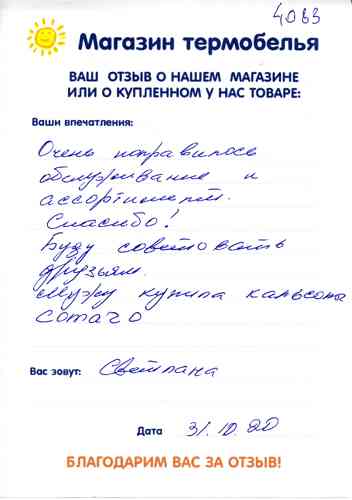 4063
Магазин термобелья
ВАШ ОТЗЫВ О НАШЕМ МАГАЗИНЕ
ИЛИ О КУПЛЕННОМ У НАС ТОВАРЕ:
Ваши впечатления:
Очень понравилось
обслуживание и
ассортимент.
Спасибо!
Буду советовать
друзьям.
Мужу купила кальсоны
сотаго
Вас зовут: Светлана
Дата 31.10.20
БЛАГОДАРИМ ВАС ЗА ОТЗЫВ!